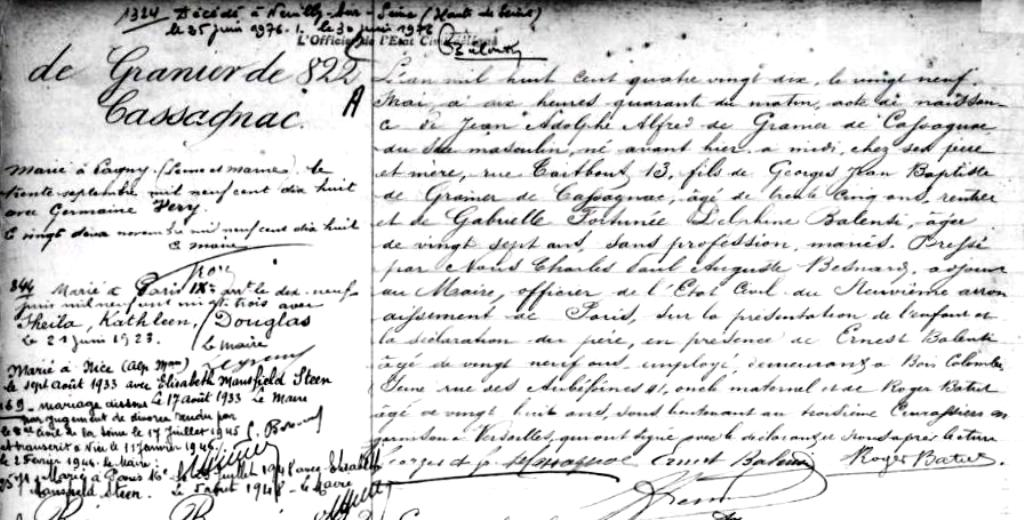 1324 Décédé à Neuilly-sur-Seine (Hauts de Seine)
le 25 juin 1976. le 30 juin 1976
L'Officier de l'Etat Civil
de Granier de
Cassagnac.
822
A
Marié à Pagny (Seine et marne) le
trente septembre mil neuf cent dix huit
avec Germaine Very.
Le vingt deux novembre mil neuf cent dix huit
Le maire
844 Marié à Paris IXe le dix-neuf
juin mil neuf cent vingt trois avec
Sheila, Kathleen, Douglas
Le 21 juin 1923. Le Maire
Marié à Nice (Alp. Mmes)
le sept août 1933 avec Elisabeth Mansfield Steen
Le 17 août 1933 Le Maire
169 mariage dissous
par jugement de divorce rendu par
le civil de la Seine le 17 Juillet 1945
et transcrit à Nice le 11 janvier 1946
le 2 Février 1946. Le Maire.
Marié à Paris 16e le Juillet 1948 avec Elisabeth
Mansfield Steen. Le 5 1948 - Le Maire
L'an mil huit cent quatre vingt dix, le vingt neuf
Mai, à dix heures quarante du matin, acte de naissan-
ce de Jean Adolphe Alfred de Granier de Cassagnac
du sexe masculin, né avant hier à midi, chez ses père
et mère, rue Taitbout, 13, fils de Georges Jean Baptiste
de Granier de Cassagnac, âgé de trente cinq ans, rentier
et de Gabrielle Fortunée Delphine Balenti, âgée
de vingt sept ans, sans profession, mariés. Dressé
par Nous Charles Paul Auguste Besnard, adjoint
au Maire, officier de l'Etat Civil du Neuvième arron
dissement de Paris, sur la présentation de l'enfant et
la déclaration du père, en présence de Ernest Balenti
âgé de vingt neuf ans, employé, demeurant à Bois Colombes
Seine rue des Aubépines 41, oncle maternel et de Roger Batut
âgé de vingt huit ans, sous lieutenant au troisième Cuirassiers en
garnison à Versailles, qui ont signé avec le déclarant et Nous après lecture
Georges de G. de Cassagnac Ernest Balenti Roger Batut.